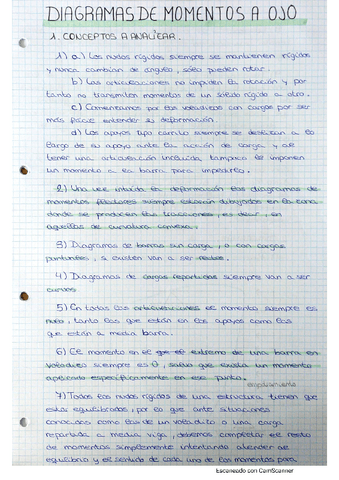 DIAGRAMAS DE MOMENTOS A OJO
1. CONCEPTOS A ANALIZAR.
1) a) Los nudos rígidos siempre se mantienen rígidos
y nunca cambian de ángulo, sólo pueden rotar.
b) Las articulaciones no impiden la rotación y por
tanto no transmiten momentos de un sólido rígido a otro.
c) Comenzamos por los voladizos con cargas por ser
más fácil entender su deformación.
d) Los apoyos tipo carrito siempre se deslizan a lo
largo de su apoyo ante la acción de carga y al
tener una articulación incluida, tampoco le imponen
un momento a la barra para impedirlo.
2) Una vez intuida la deformación los diagramas de
momentos flectores siempre estarán dibujados en la cara
donde se producen las tracciones, es decir, en
aquellas de curvatura convexa.
3) Diagramas de barras sin carga, o con cargas
puntuales, si existen van a ser rectos.
4) Diagramas de cargas repartidas siempre van a ser
curvos
5) En todas las articulaciones el momento siempre es
nulo, tanto las que están en los apoyos como las
que están a media barra.
6) El momento en el extremo de una barra en
voladizo siempre es 0, salvo que exista un momento
aplicado específicamente en ese punto.
7) Todos los nudos rígidos de una estructura tienen que
estar equilibrados, por lo que ante situaciones
conocidas como las de un voladizo o una carga
repartida a media viga, debemos completar el resto
de momentos simplemente intentando atender al
equilibrio y el sentido de cada uno de los momentos para
Escaneado con CamScanner